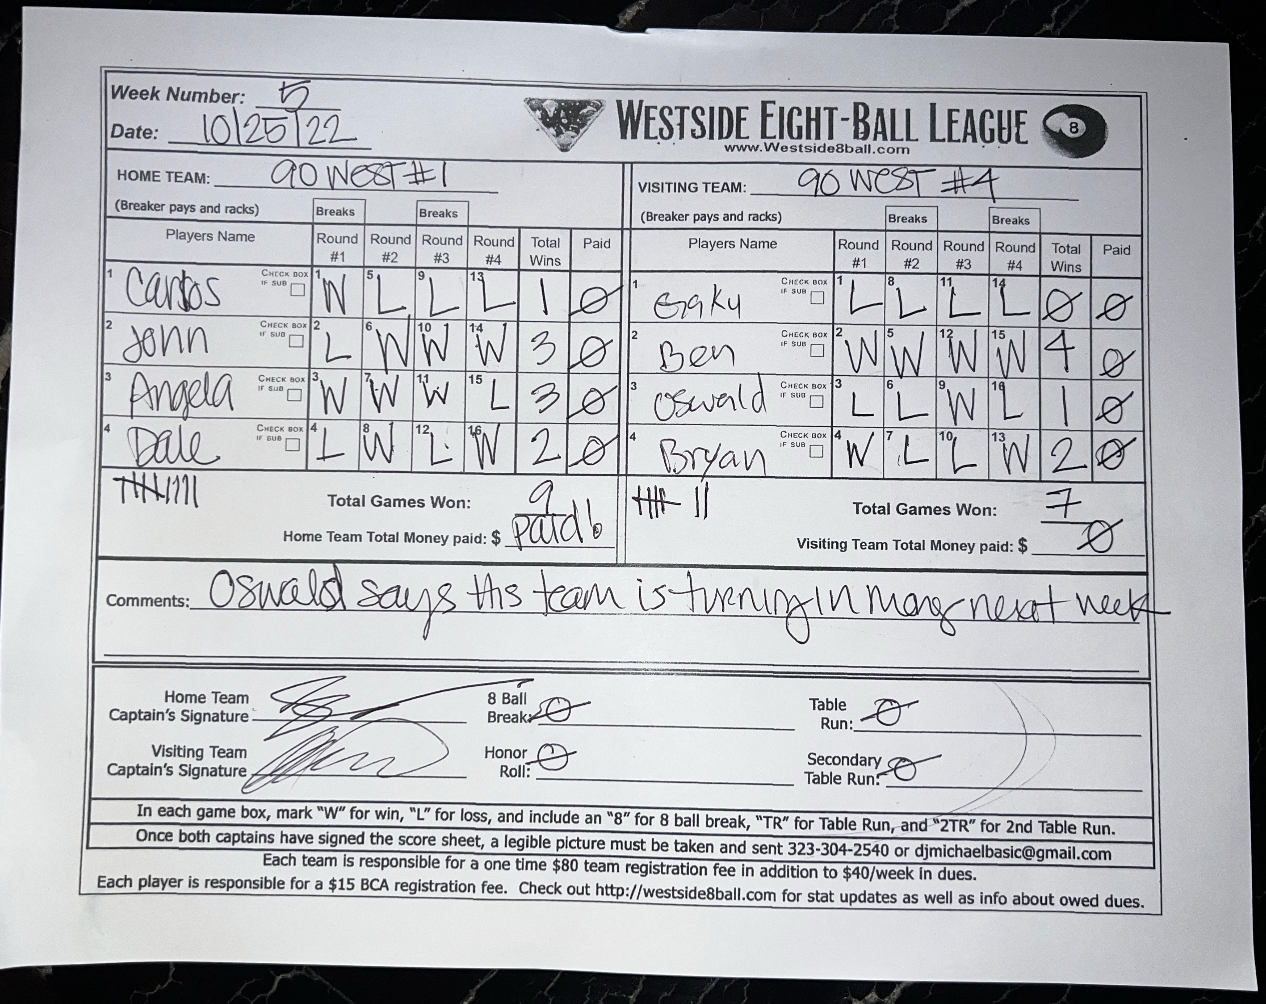 Week Number: 5
Date: 10/25/22
WESTSIDE EIGHT-BALL LEAGUE 8
www.Westside8ball.com
HOME TEAM: 90 WEST #1
VISITING TEAM: 90 WEST #4
(Breaker pays and racks) Breaks Breaks
(Breaker pays and racks) Breaks Breaks
Players Name Round #1 Round #2 Round #3 Round #4 Total Wins Paid
Players Name Round #1 Round #2 Round #3 Round #4 Total Wins Paid
1 Carlos CHECK BOX IF SUB 1 W 5 L 9 L 13 L 1 Ø
1 CHECK BOX IF SUB 1 L 8 L 11 L 14 L Ø Ø
2 John CHECK BOX IF SUB 2 L 6 W 10 W 14 W 3 Ø
2 Ben CHECK BOX IF SUB 2 W 5 W 12 W 15 W 4 Ø
3 Angela CHECK BOX IF SUB 3 W 7 W 11 W 15 L 3 Ø
3 Oswald CHECK BOX IF SUB 3 L 6 L 9 W 16 L 1 Ø
4 Dale CHECK BOX IF SUB 4 L 8 W 12 L 16 W 2 Ø
4 Bryan CHECK BOX IF SUB 4 W 7 L 10 L 13 W 2 Ø
Total Games Won: 9
Total Games Won: 7
Home Team Total Money paid: $ paid!
Visiting Team Total Money paid: $ Ø
Comments: Oswald says this team is turning in money next week
Home Team Captain's Signature
8 Ball Break: Ø
Table Run: Ø
Visiting Team Captain's Signature
Honor Roll: Ø
Secondary Table Run: Ø
In each game box, mark "W" for win, "L" for loss, and include an "8" for 8 ball break, "TR" for Table Run, and "2TR" for 2nd Table Run.
Once both captains have signed the score sheet, a legible picture must be taken and sent 323-304-2540 or djmichaelbasic@gmail.com
Each team is responsible for a one time $80 team registration fee in addition to $40/week in dues.
Each player is responsible for a $15 BCA registration fee. Check out http://westside8ball.com for stat updates as well as info about owed dues.